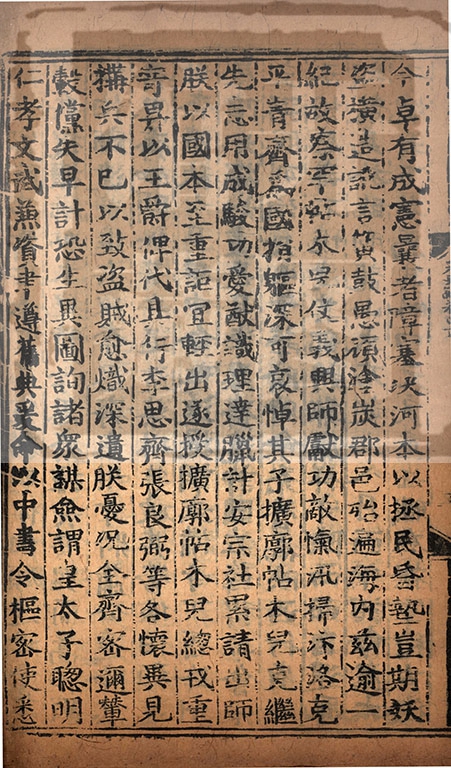 今卓有成憲曩者障塞決河本以拯民昏墊豈期妖
盜橫造訛言簧鼓愚頑塗炭郡邑殆遍海內茲逾一
紀故察罕帖木兒仗義興師獻功敵愾汛掃汴洛克
平青齊為國捐軀深可哀悼其子擴廓帖木兒克繼
先志用成駿功愛猷識理達臘計安宗社累請出師
朕以國本至重詎宜輕出遂授擴廓帖木兒總戎重
寄畀以王爵俾代其行李思齊張良弼等各懷異見
搆兵不已以致盜賊愈熾深遺朕憂況全齊密邇輦
轂儻失早計恐生異圖詢諸衆謀僉謂皇太子聰明
仁孝文武兼資聿遵舊典爰命以中書令樞密使悉